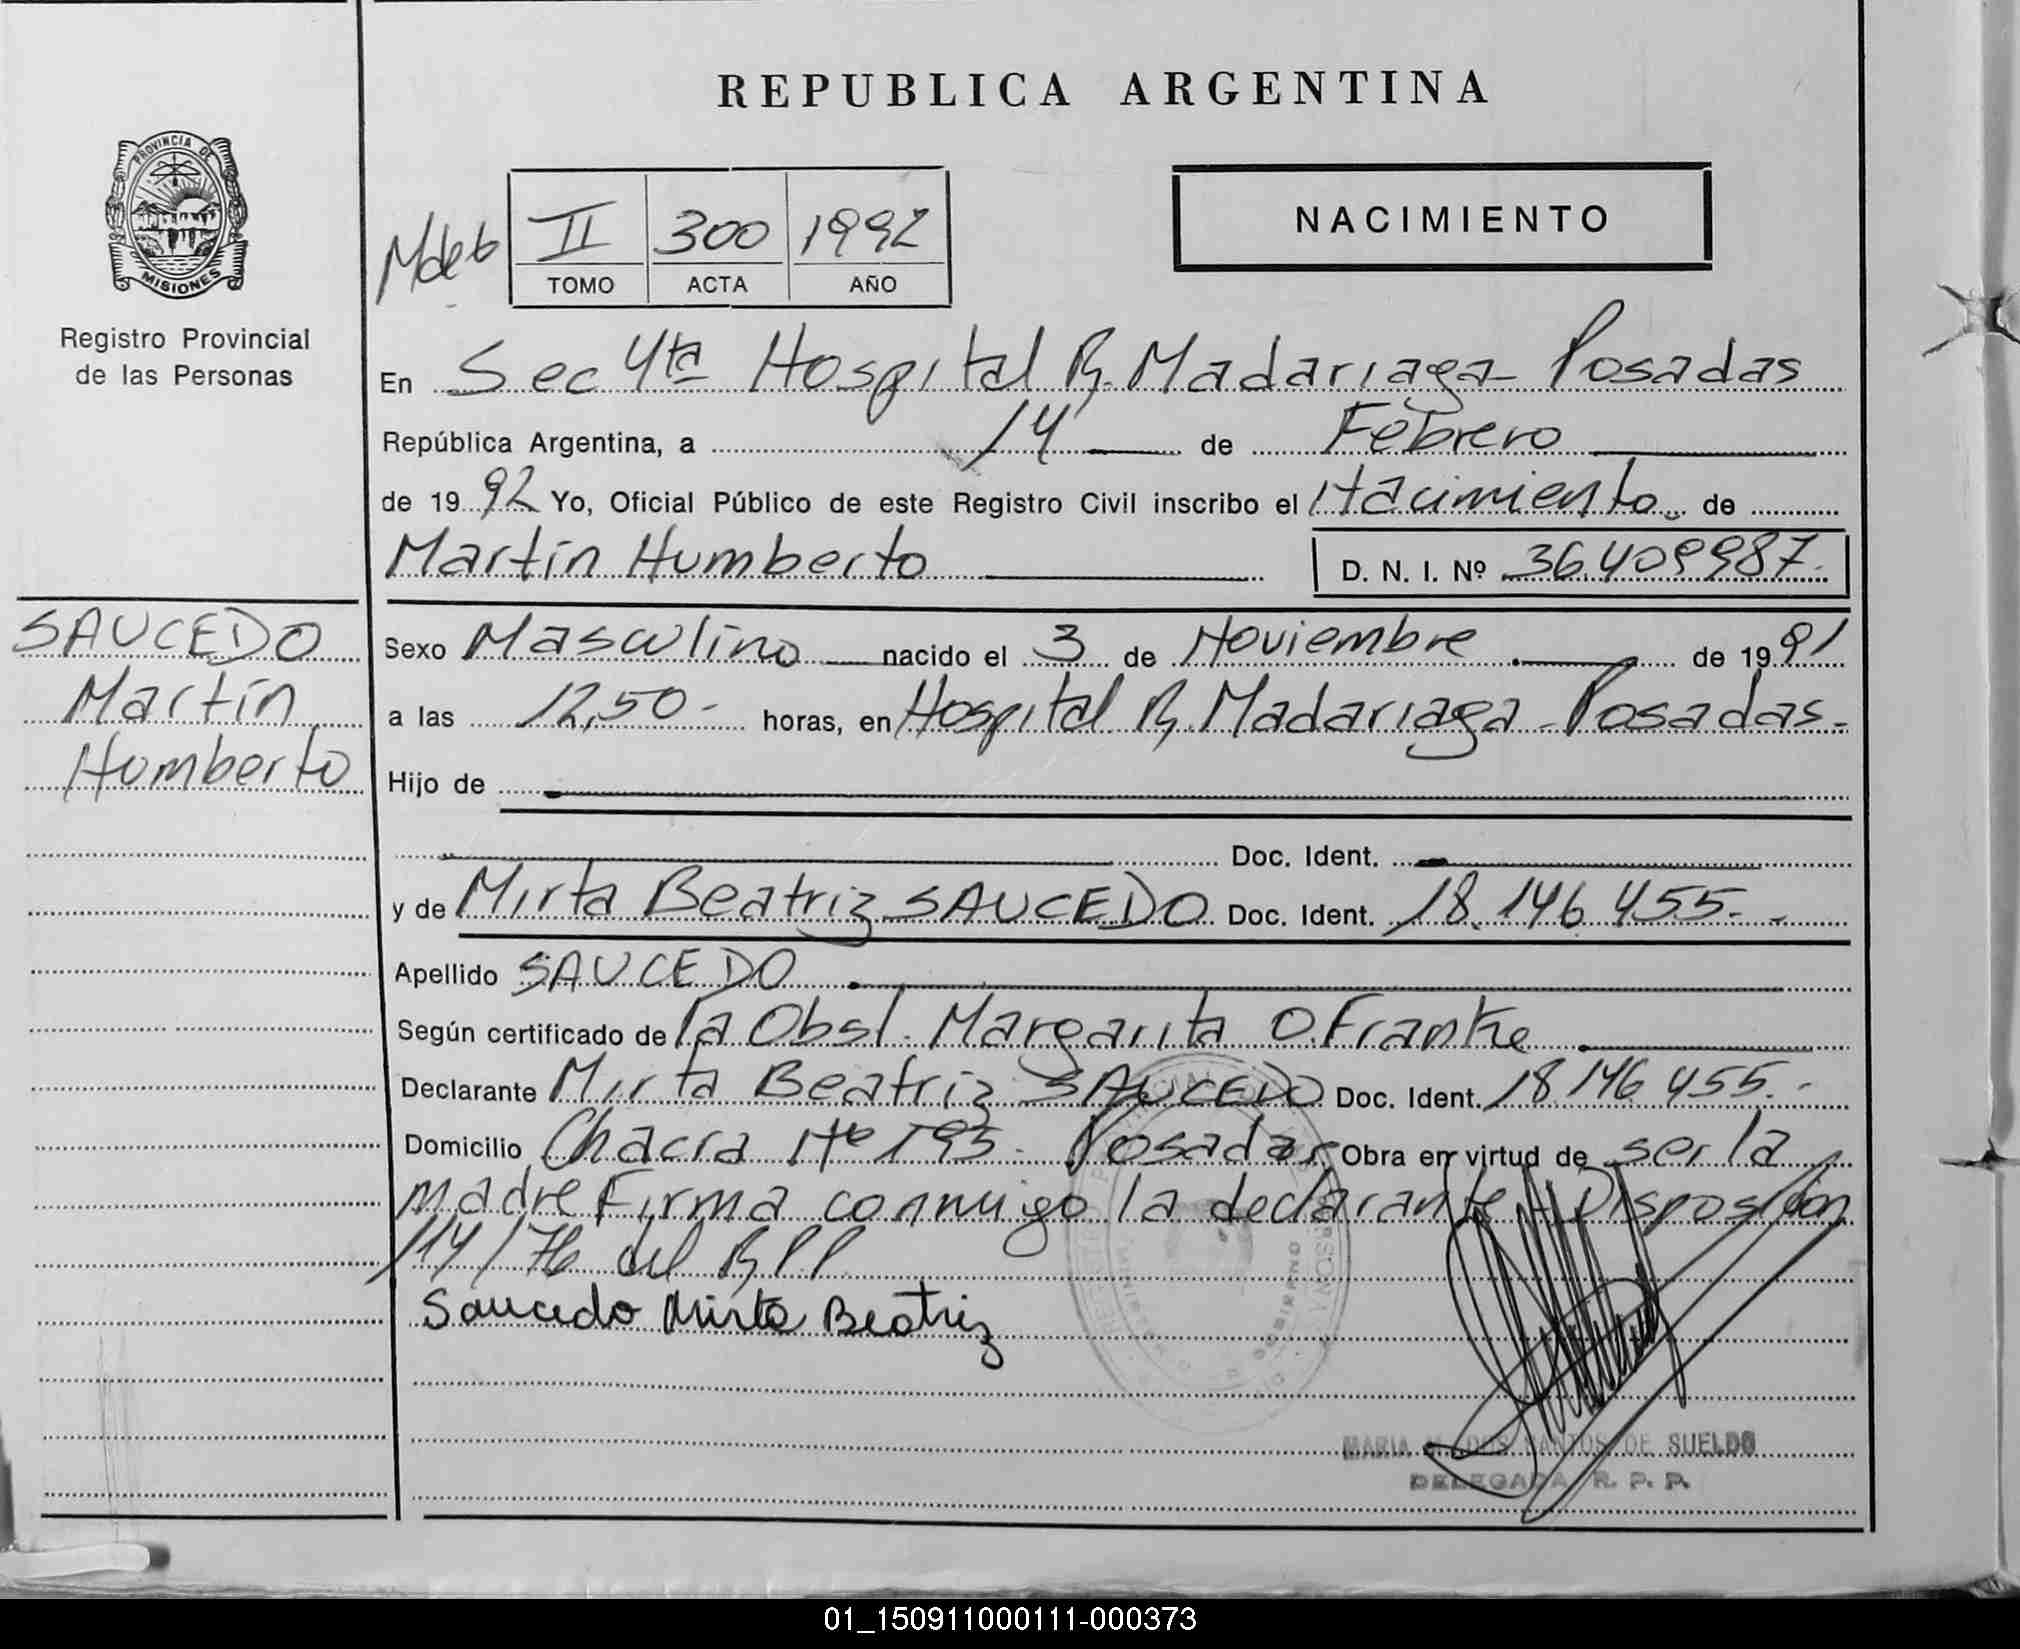 REPUBLICA ARGENTINA
PROVINCIA DE
MISIONES
Registro Provincial
de las Personas
NACIMIENTO
II 300 1992
TOMO ACTA AÑO
En Sec 4ta Hospital R. Madariaga - Posadas
República Argentina, a 14 de Febrero
de 1992 Yo, Oficial Público de este Registro Civil inscribo el Nacimiento de
Martín Humberto D. N. I. Nº 36.409987.
SAUCEDO
Martín
Humberto
Sexo Masculino nacido el 3 de Noviembre de 1991
a las 12,50- horas, en Hospital R. Madariaga - Posadas-
Hijo de
Doc. Ident.
y de Mirta Beatriz SAUCEDO Doc. Ident. 18.146.455.-
Apellido SAUCEDO
Según certificado de la Obst. Margarita O. Franke
Declarante Mirta Beatriz SAUCEDO Doc. Ident. 18.146.455.-
Domicilio Chacra Nº 193 - Posadas Obra en virtud de ser la
madre Firma conmigo la declarante - Disposición
114/76 del R.P.P.
Saucedo Mirta Beatriz
MARIA DOS SANTOS DE SUELDO
DELEGADA R. P. P.
01_150911000111-000373